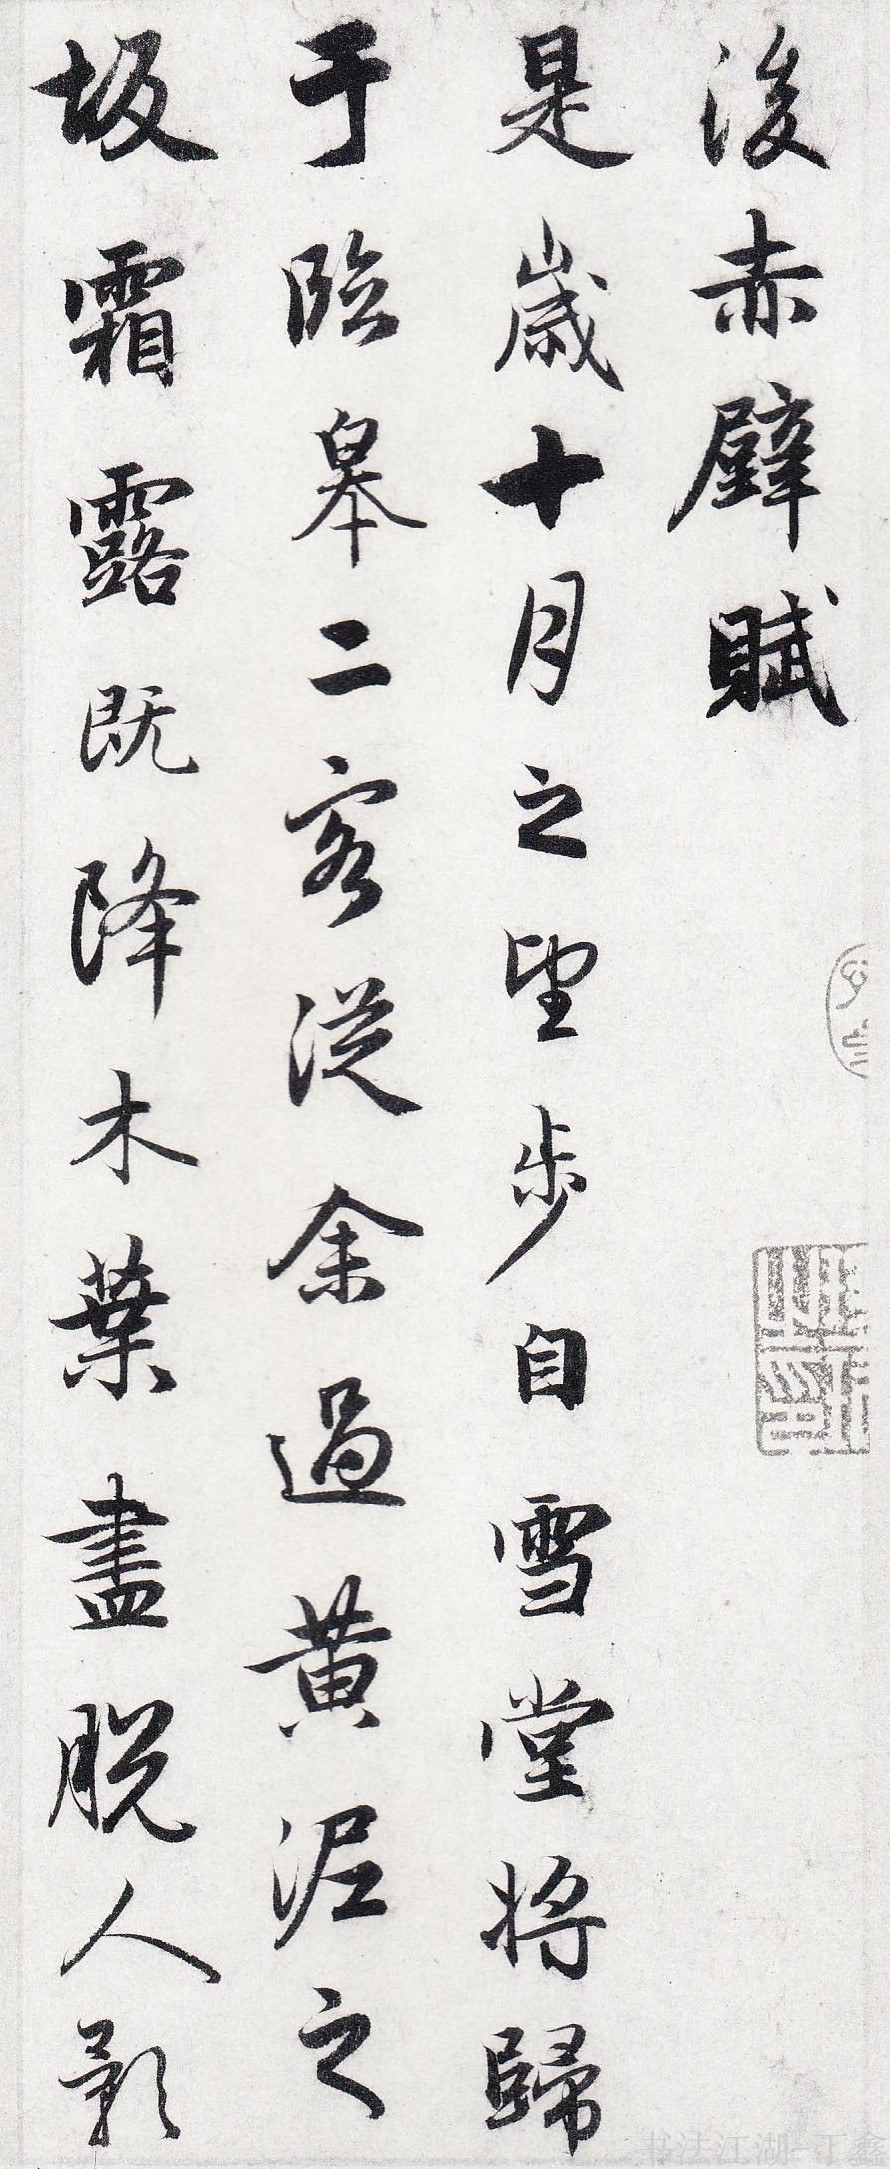 後赤壁賦
是歲十月之望步自雪堂將歸
于臨皋二客從余過黃泥之
坂霜露既降木葉盡脫人影
书法江湖 丁鑫